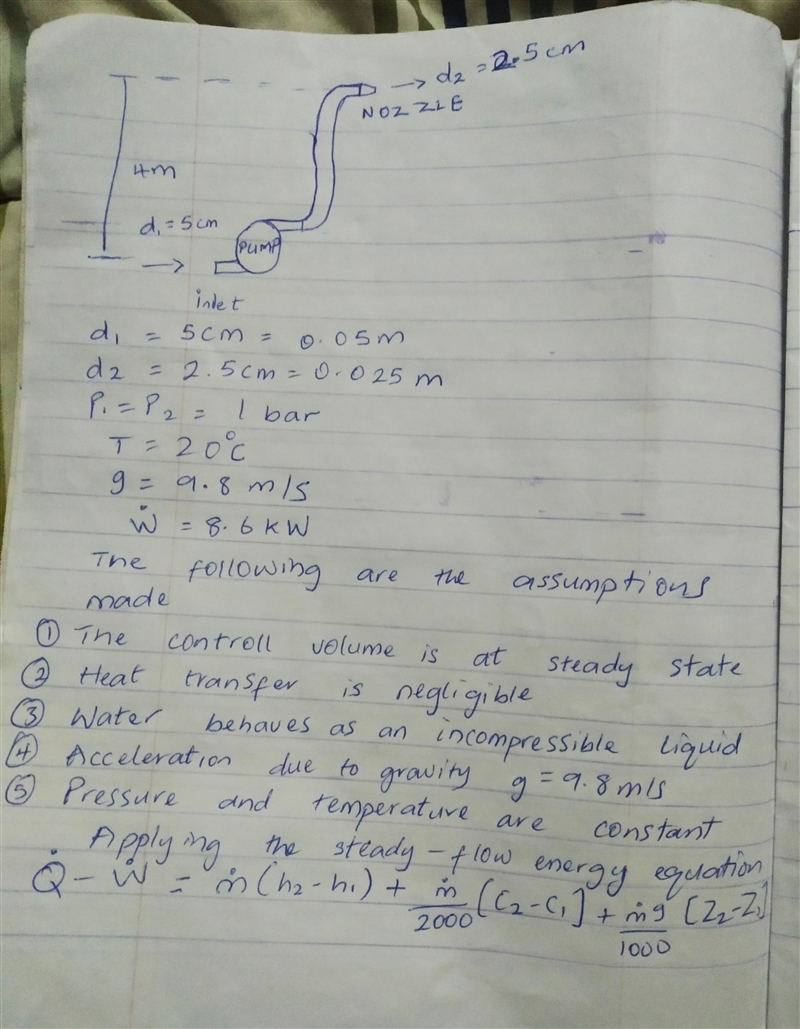 → d2 = 2.5cm
NOZZLE
4m
d1 = 5cm
PUMP
→
inlet
d1 = 5cm = 0.05m
d2 = 2.5cm = 0.025 m
P1 = P2 = 1 bar
T = 20°C
g = 9.8 m/s
Ẇ = 8.6 kW
The following are the assumptions
made
① The controll volume is at steady state
② Heat transfer is negligible
③ Water behaves as an incompressible liquid
④ Acceleration due to gravity g = 9.8m/s
⑤ Pressure and temperature are constant
Applying the steady-flow energy equation
Q̇ - Ẇ = ṁ(h2-h1) + ṁ/2000 [C2-C1] + ṁg/1000 [Z2-Z1]